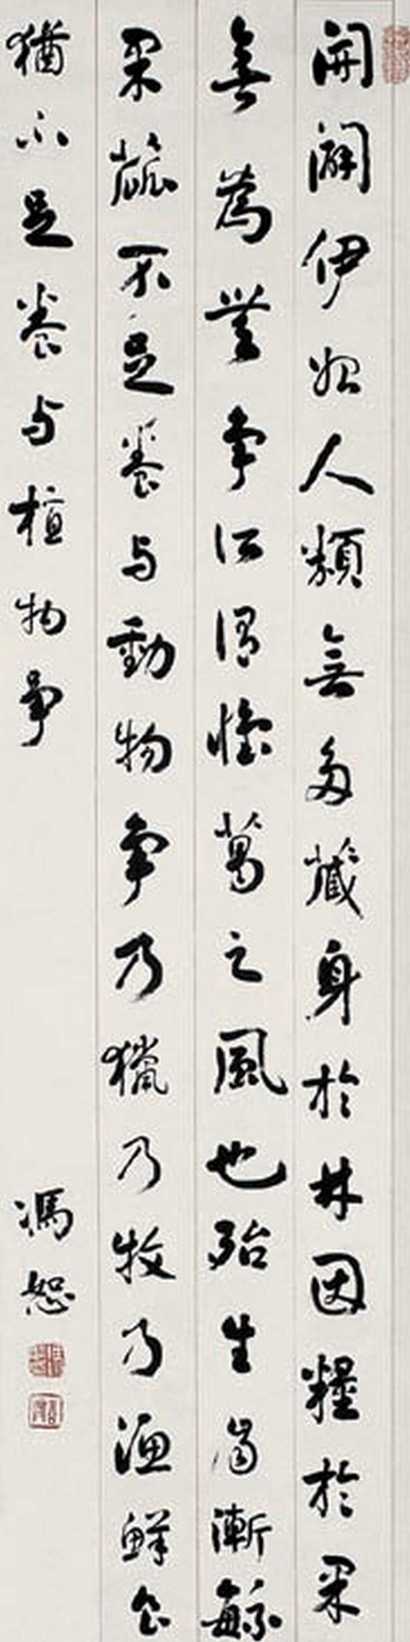 開闢伊始人類無多藏身於林因糧於果
無為無爭所謂懷葛之風也殆生齒漸繁
果蓏不足養與動物爭乃獵乃牧乃漁鮮食
猶不足養與植物爭
馮恕